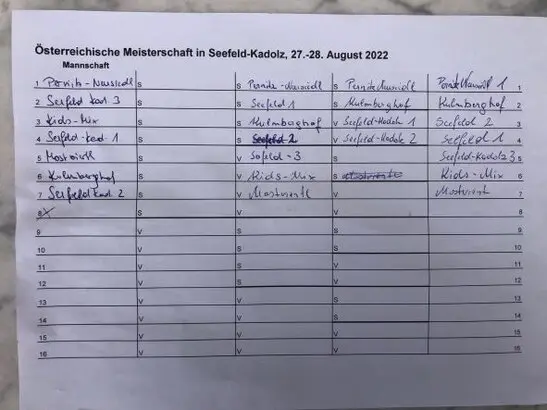 Österreichische Meisterschaft in Seefeld-Kadolz, 27.-28. August 2022
Mannschaft
1 S S Pernitz Neusiedl S Pernitz Neusiedl 1 1
2 Seefeld Kad. 3 S S Seefeld 1 S Kulmberghof Kulmberghof 2
3 Kids-Mix S S Kulmberghof V Seefeld-Kadolz 1 Seefeld 2 3
4 Seefeld-Kad. 1 S S Seefeld 2 V Seefeld-Kadolz 2 Seefeld 1 4
5 S V Seefeld-3 S Seefeld-Kadolz 3 5
6 Kulmberghof S V Kids-Mix S Kids-Mix 6
7 Seefeld Kad. 2 S V Mostviertl V Mostviertl 7
8 S V V 8
9 V V S 9
10 V S V 10
11 V S V 11
12 V S V 12
13 V V S 13
14 V V S 14
15 V V V 15
16 V V V 16